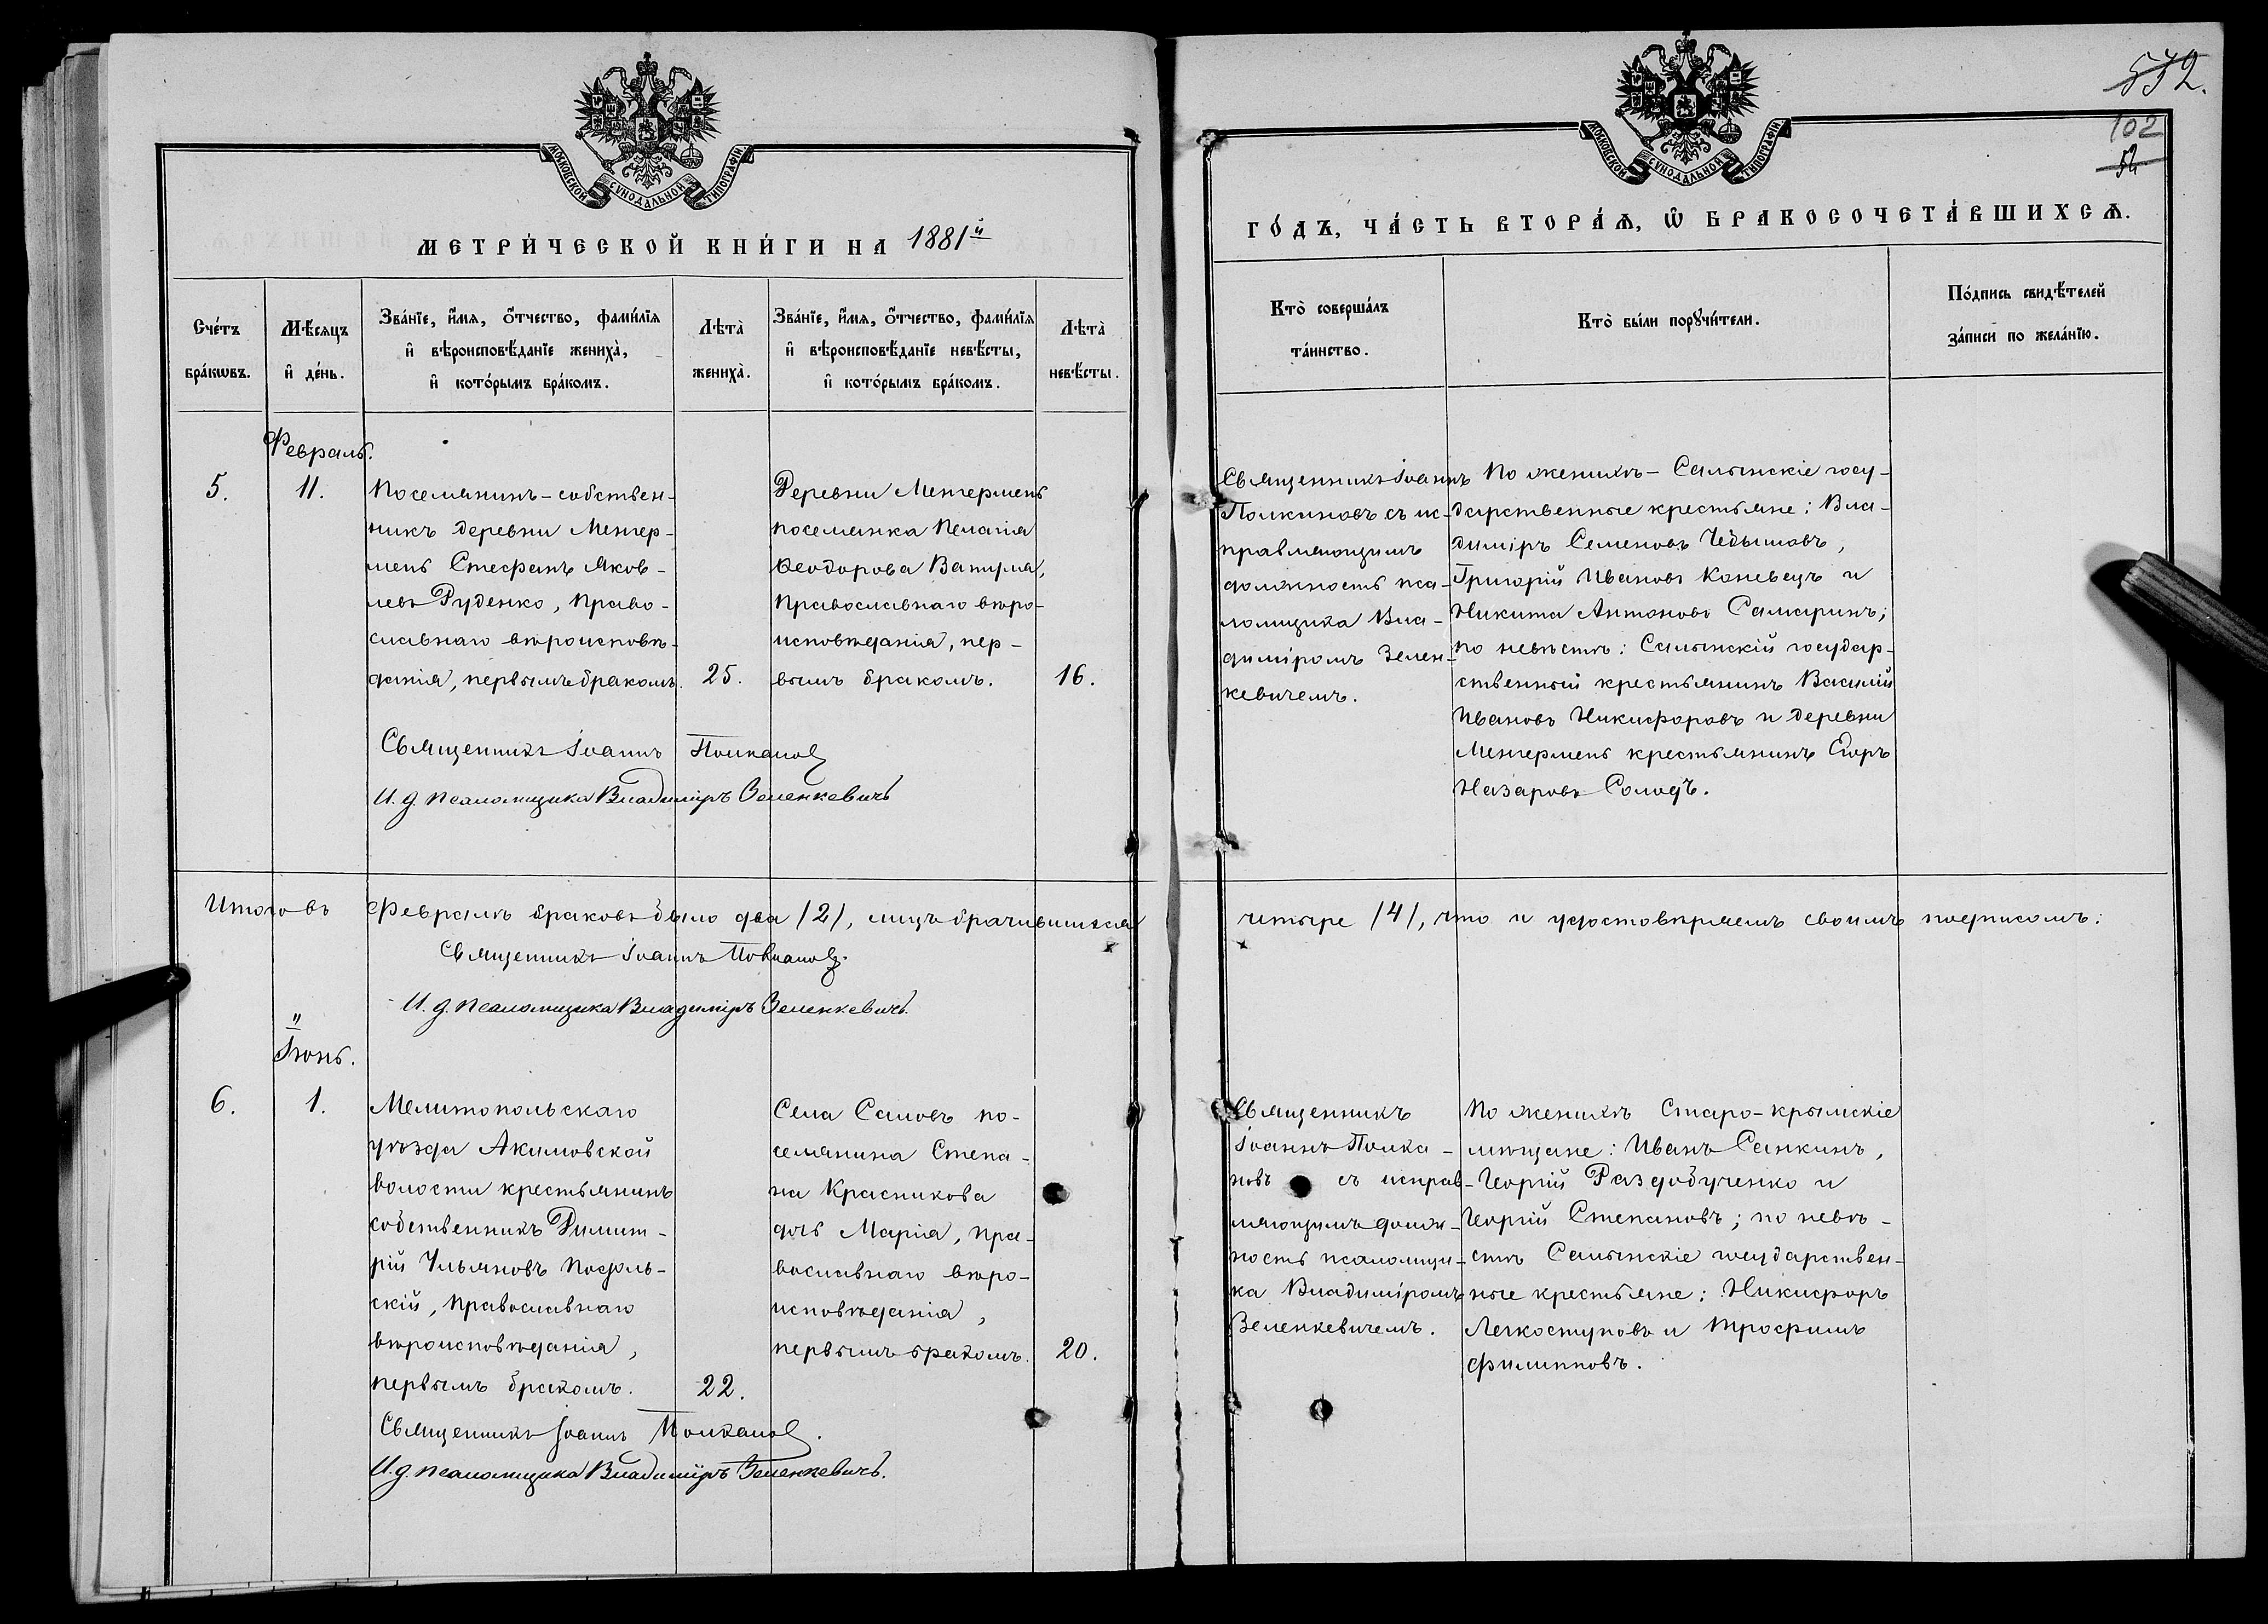 МОСКОВСКОЙ СѴНОДАЛЬНОЙ ТИПОГРАФІИ
МЕТРИ́ЧЕСКОЙ КНИ́ГИ НА 1881й
Сче́тъ бра́кѡвъ.
Мѣ́сяцъ и҆ де́нь.
Зва́нїе, и҆́мѧ, ѻ҆́тчество, фами́лїѧ
и҆ вѣроисповѣ́данїе жениха̀,
и҆ кото́рымъ бра́комъ.
Лѣта̀ жениха̀.
Зва́нїе, и҆́мѧ, ѻ҆́тчество, фами́лїѧ
и҆ вѣроисповѣ́данїе невѣ́сты,
и҆ кото́рымъ бра́комъ.
Лѣта̀ невѣ́сты.
Февраль.
5.
11.
Поселянинъ-собствен-
никъ деревни Менгер-
мень Стефанъ Яков-
левъ Руденко, право-
славнаго вѣроисповѣ-
данія, первымъ бракомъ.
25.
Деревни Менгермень
поселянка Пелагія
Ѳеодорова
Православнаго вѣро-
исповѣданія, пер-
вымъ бракомъ.
16.
Священникъ Іоаннъ Полканов
И. д. псаломщика Владиміръ Зеленкевичъ
Итого въ Февралѣ браковъ было два /2/, лицъ брачившихся
Священникъ Іоаннъ Полканов.
И. д. псаломщика Владиміръ Зеленкевичъ.
"
Іюнь.
6.
1.
Мелитопольскаго
уѣзда Акимовской
волости крестьянинъ
собственникъ Димит-
рій Ульяновъ Посуль-
скій, православнаго
вѣроисповѣданія,
первымъ бракомъ.
22.
Села Саловъ по-
селянина Степа-
на Красникова
дочь Марія, пра-
вославнаго вѣро-
исповѣданія,
первымъ бракомъ.
20.
Священникъ Іоаннъ Полканов.
И. д. псаломщика Владиміръ Зеленкевичъ.
532.
102
52
МОСКОВСКОЙ СѴНОДАЛЬНОЙ ТИПОГРАФІИ
ГО́ДЪ, ЧА́СТЬ ВТОРА́Ѧ, Ѡ҆ БРАКОСОЧЕТА́ВШИХСѦ.
Кто̀ соверша́лъ
та́инство.
Кто̀ бы́ли порꙋчи́тели.
По́дпись свидѣ́телей
за́писи по жела́нїю.
Священникъ Іоаннъ
Полкановъ съ ис-
правляющимъ
должность пса-
ломщика Вла-
диміромъ Зелен-
кевичемъ.
По женихѣ - Салынскіе госу-
дарственные крестьяне: Вла-
диміръ Семеновъ Чебышовъ,
Григорій Ивановъ Коневецъ и
Никита Антоновъ Самаринъ;
по невѣстѣ: Салынскій государ-
ственный крестьянинъ Василій
Ивановъ Никифоровъ и деревни
Менгермень крестьянинъ Егоръ
Назаровъ Солодъ.
четыре /4/, что и удостовѣряемъ своимъ подписомъ:
Священникъ
Іоаннъ Полка-
новъ съ исправ-
ляющимъ долж-
ность псаломщи-
ка Владиміромъ
Зеленкевичемъ.
По женихѣ Старо-крымскіе
мѣщане: Иванъ Санкинъ,
Георгій Раздобученко и
Георгій Степановъ; по невѣ-
стѣ Салынскіе государствен-
ные крестьяне: Никифоръ
Легкоступовъ и Трофимъ
Филипповъ.